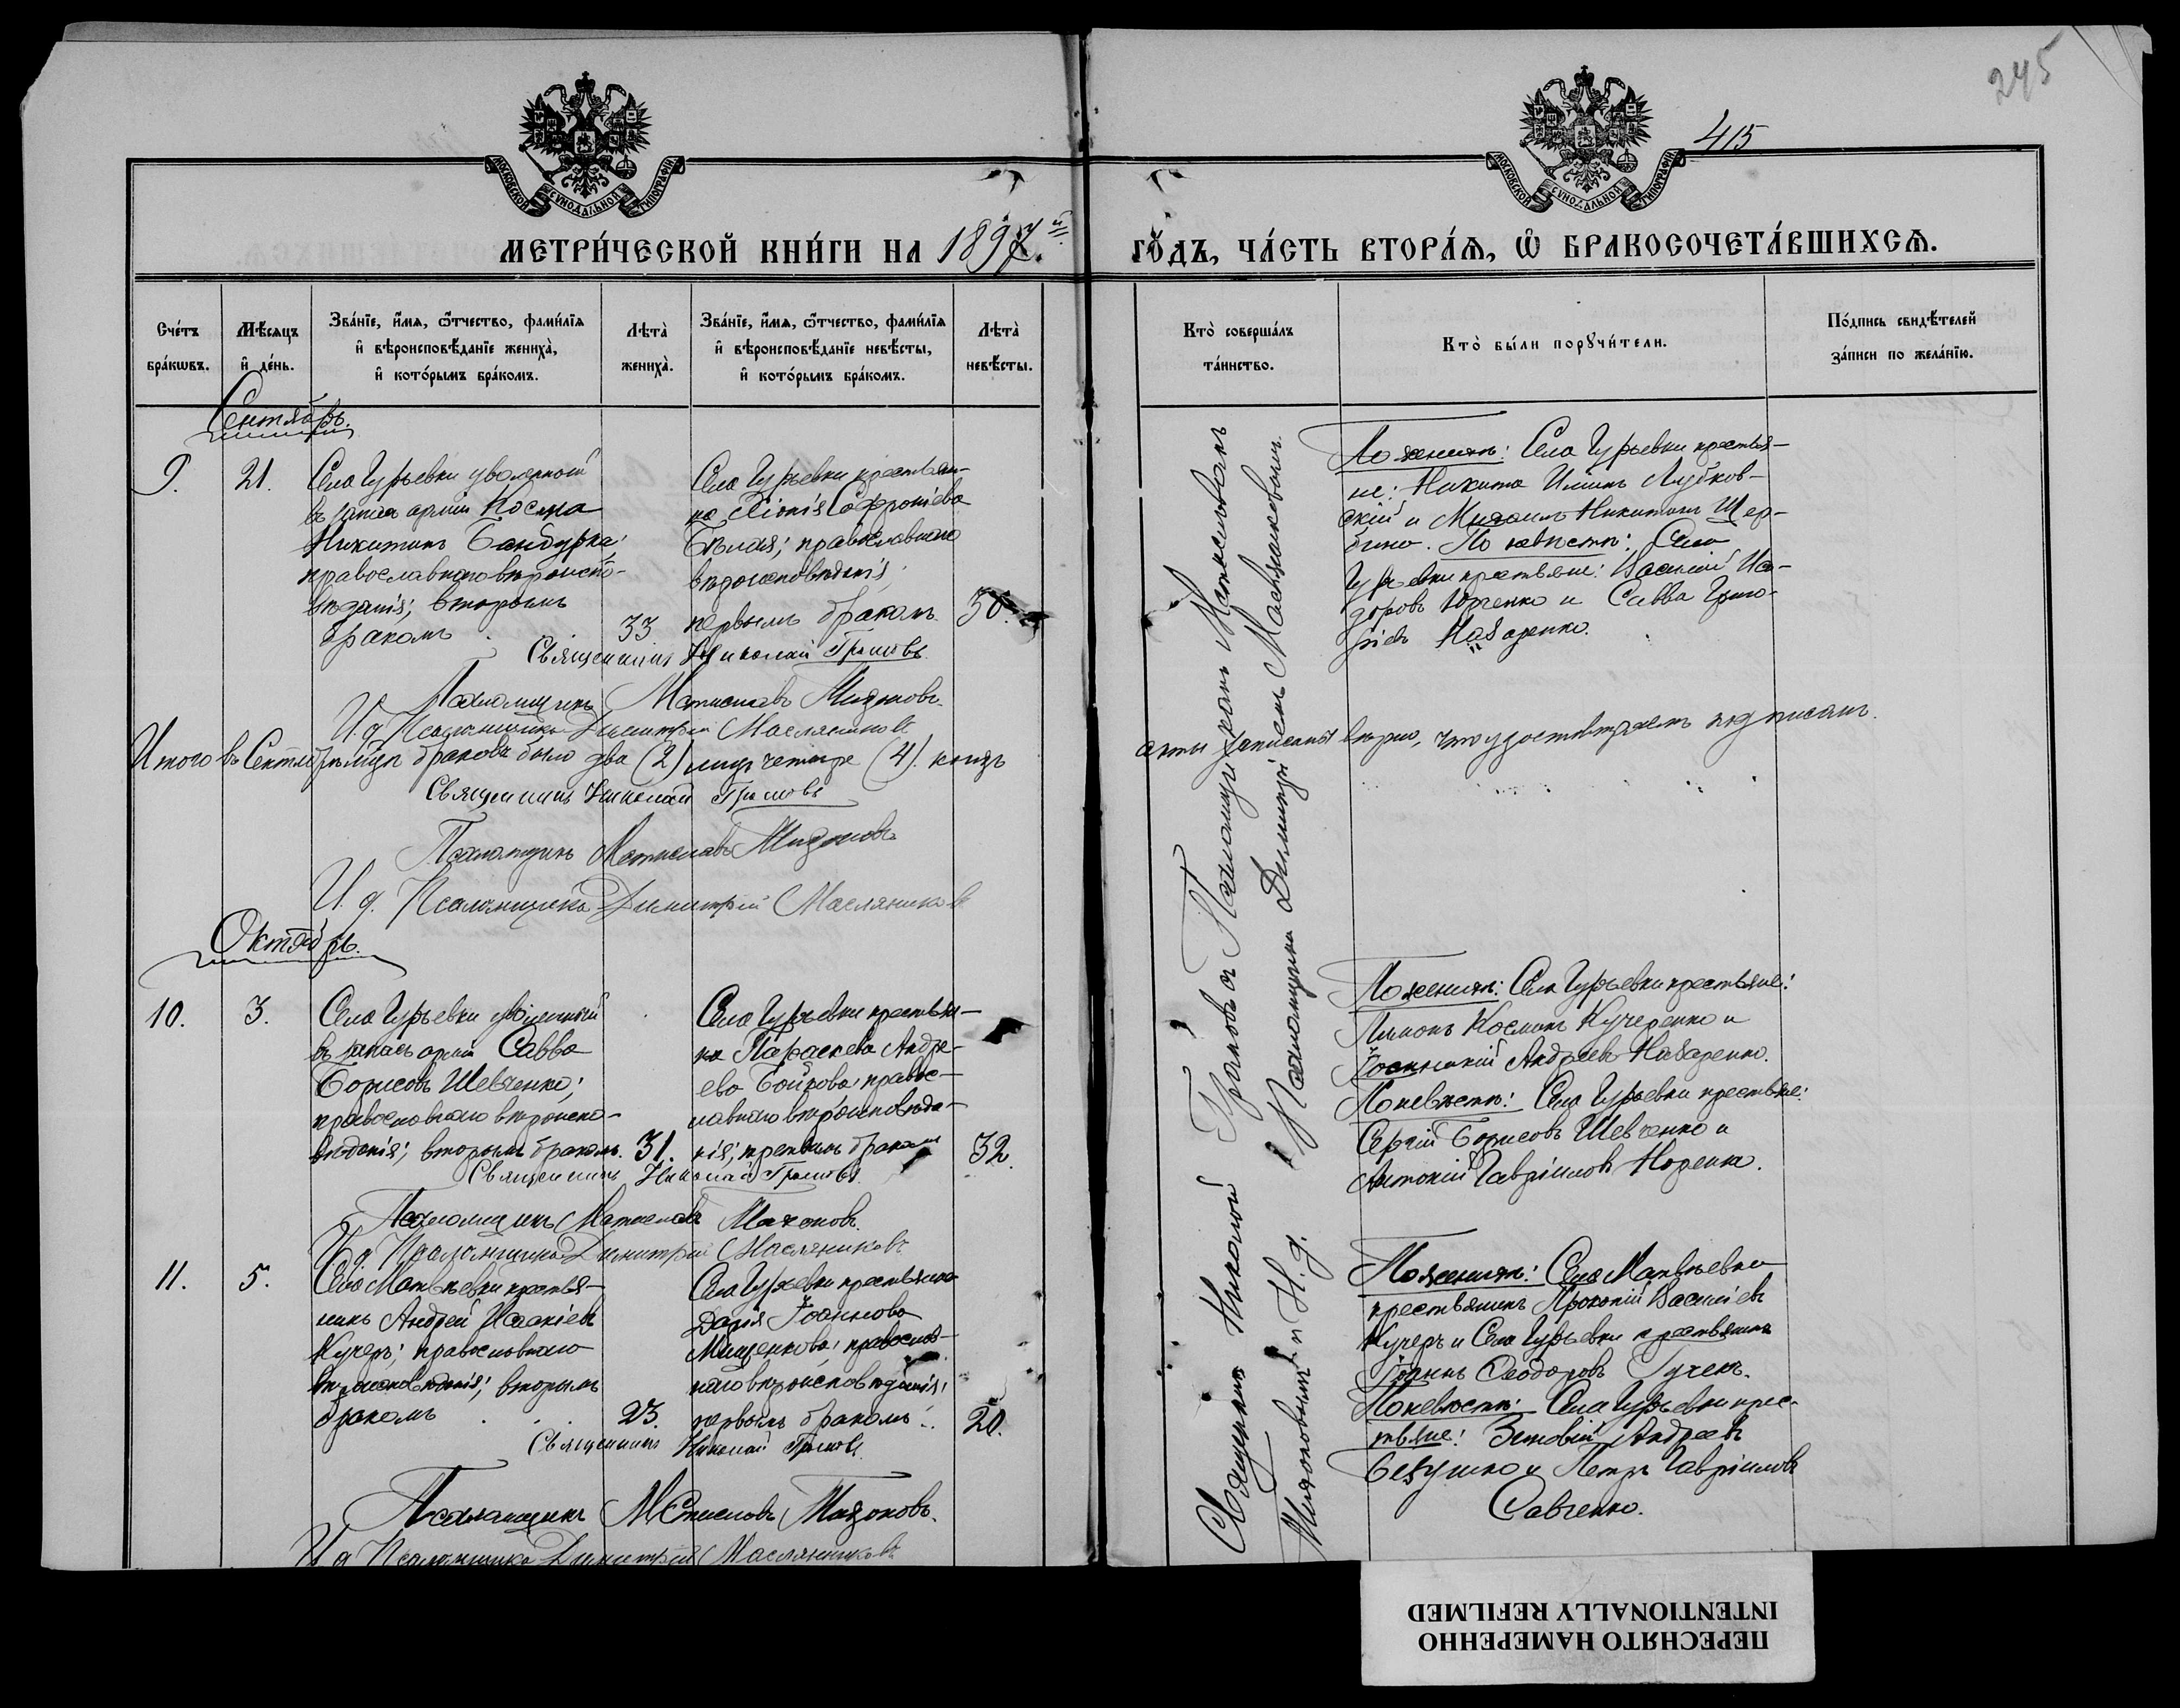 245
415
МОСКОВСКОЙ СѴНОДАЛЬНОЙ ТИПОГРАФІИ
МОСКОВСКОЙ СѴНОДАЛЬНОЙ ТИПОГРАФІИ
МЕТРИ́ЧЕСКОЙ КНИ́ГИ НА 1897й.
ГО́ДЪ, ЧА́СТЬ ВТОРА́Ѧ, Ѽ БРАКОСОЧЕТА́ВШИХСѦ.
Сче́тъ бра́кѡвъ.
Мѣ́сяцъ и҆ де́нь.
Зва́нїе, и҆́мѧ, ѻ҆́тчество, фами́лїѧ и҆ вѣроисповѣ́данїе жениха̀, и҆ кото́рымъ бра́комъ.
Лѣта̀ жениха̀.
Зва́нїе, и҆́мѧ, ѻ҆́тчество, фами́лїѧ и҆ вѣроисповѣ́данїе невѣ́сты, и҆ кото́рымъ бра́комъ.
Лѣта̀ невѣ́сты.
Кто̀ соверша́лъ та́инство.
Кто̀ бы́ли порꙋчи́тели.
По́дпись свидѣ́телей за́писи по жела́нїю.
Сентябрь.
9.
21.
Села Гурьевки уволенный
въ запас арміи Косма
Никитинъ Бандурка;
православнаго вѣроиспо-
вѣданія; вторымъ
бракомъ
33
Села Гурьевки крестьян-
ка Софроніева
Бѣлая; православнаго
вѣроисповѣданія;
первымъ бракомъ.
30.
По женихѣ: Села Гурьевки крестья-
не: Никита
скій и Михаилъ Никитинъ Щер-
бина. По невѣстѣ: Села
Гурьевки крестьяне: Василій Иси-
доровъ Юрченко и Савва Григо-
рьевъ Назаренко.
Священникъ Николай
Псаломщикъ Мстиславъ
И. д. Псаломщика Димитрій Маслянниковъ
Итого въ Сентябрѣ мѣсяцѣ браковъ было два (2) лицъ четыре (4). коихъ
акты записаны вѣрно, что удостовѣряемъ подписомъ.
Священникъ Николай
Псаломщикъ Мстиславъ
И. д. Псаломщика Димитрій Маслянниковъ
Октябрь.
10.
3.
Села Гурьевки уволенный
въ запасъ арміи Савва
Борисовъ Шевченко;
православнаго вѣроиспо-
вѣданія; вторымъ бракомъ.
31.
Села Гурьевки крестьян-
ка Параскева Андре-
ева Боброва; правос-
лавнаго вѣроисповѣда-
нія; третьимъ бракомъ
32.
По женихѣ: Села Гурьевки крестьяне:
Косминъ Кучеренко и
Андреевъ Назаренко.
По невѣстѣ: Села Гурьевки крестьяне:
Сергій Борисовъ Шевченко и
Антоній Гавріиловъ Норенко.
Священникъ Николай
Псаломщикъ Мстиславъ
И. д. Псаломщика Димитрій Маслянниковъ
11.
5.
Села Матвѣевки крестья-
нинъ Андрей Исакіевъ
Кучеръ; православнаго
вѣроисповѣданія; вторымъ
бракомъ
23.
Села Гурьевки крестьянка
Дарія Іоаннова
Мищенкова; православ-
наго вѣроисповѣданія;
первымъ бракомъ.
20.
По женихѣ: Села Матвѣевки
крестьянинъ Прокопій Василіевъ
Кучеръ и Села Гурьевки крестьянинъ
Іоаннъ Ѳеодоровъ
По невѣстѣ: Села Гурьевки крес-
тьяне: Зиновій Андреевъ
и Петръ Гавріиловъ
Савченко.
Священникъ Николай
Псаломщикъ Мстиславъ
И. д. Псаломщика Димитрій Маслянниковъ
Священникъ Николай съ Псаломщиками Мстиславомъ
и И. д. Псаломщика Димитріемъ Маслянниковымъ.
ПЕРЕСНЯТО НАМЕРЕННО
INTENTIONALLY REFILMED